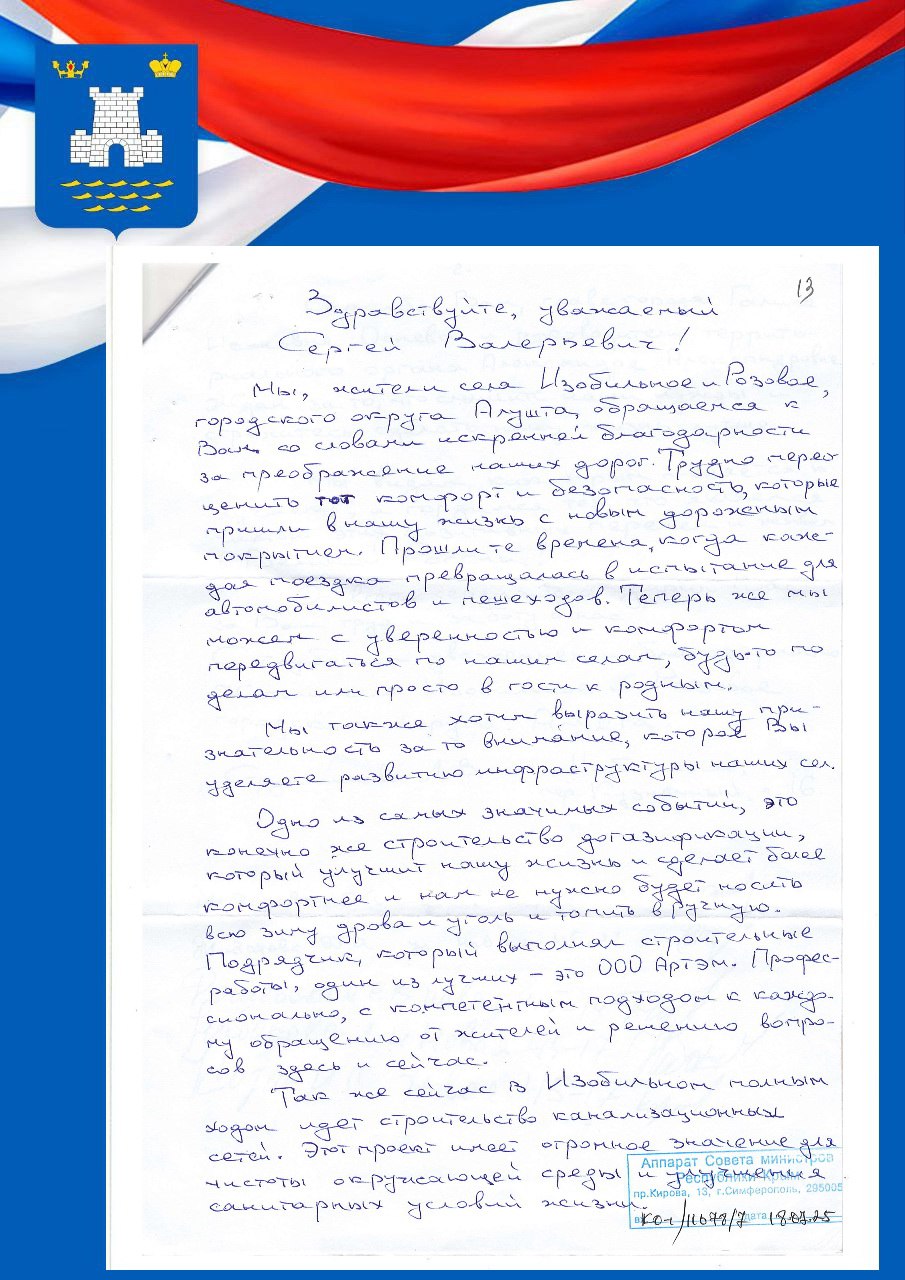 13
Здравствуйте, уважаемый
Сергей Валерьевич!
Мы, жители села Изобильное и Розовое,
городского округа Алушта, обращаемся к
Вам со словами искренней благодарности
за преображение наших дорог. Трудно перео
ценить тот комфорт и безопасность, которые
пришли в нашу жизнь с новым дорожным
покрытием. Прошли те времена, когда каж-
дая поездка превращалась в испытание для
автомобилистов и пешеходов. Теперь же мы
можем с уверенностью и комфортом
передвигаться по нашим селам, будь-то по
делам или просто в гости к родным.
Мы также хотим выразить нашу при-
знательность за то внимание, которое Вы
уделяете развитию инфраструктуры наших сел.
Одно из самых значимых событий, это
конечно же строительство догазификации,
который улучшит нашу жизнь и сделает более
комфортнее и нам не нужно будет носить
всю зиму дрова и уголь и топить в ручную.
Подрядчик, который выполнял строительные
работы, один из лучших – это ООО Артэм. Профес-
сионально, с компетентным подходом к каждо-
му обращению от жителей и решению вопро-
сов здесь и сейчас.
Так же сейчас в Изобильном полным
ходом идет строительство канализационных
сетей. Этот проект имеет огромное значение для
чистоты окружающей среды и улучшения
санитарных условий жизни.
Аппарат Совета министров
Республики Крым
пр.Кирова, 13, г.Симферополь, 295005
дата 18.07.25